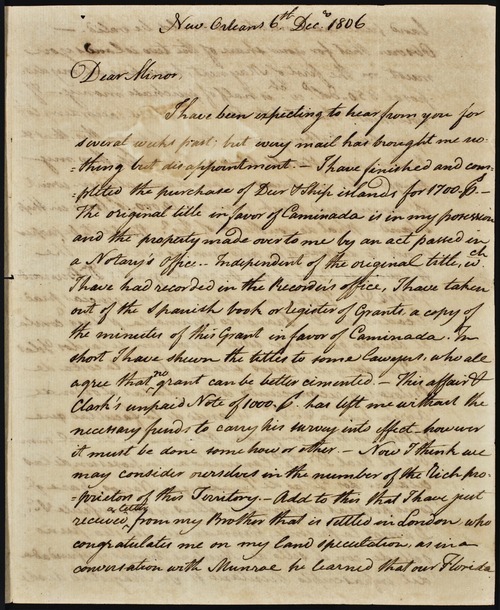 New Orleans 6th Decr 1806
Dear Minor,
I have been expecting to hear from you for
several weeks past; but every mail has brought me no-
-thing but disappointment. — I have finished and com-
-pleted the purchase of Deer & Ship islands for 1700 $. —
The original title in favor of Caminada is in my possession
and the property made over to me by an act passed in
a Notary's Office. — Independent of the original title, wch
I have had recorded in the Recorders office, I have taken
out of the Spanish book or Register of Grants, a copy of
the minutes of this Grant in favor of Caminada. In
short I have shewn the titles to some lawyers, who all
agree that no grant can be better cimented. — This affair &
Clark's unpaid Note of 1000 $. has left me without the
necessary funds to carry his survey into effect however
it must be done some how or other. — Now I think we
may consider ourselves in the number of the Rich pro-
-prietors of this Territory. — Add to this that I have just
received a letter from my Brother that is settled in London, who
congratulates me on my land speculation, as in a
conversation with Munroe he learned that our Florida